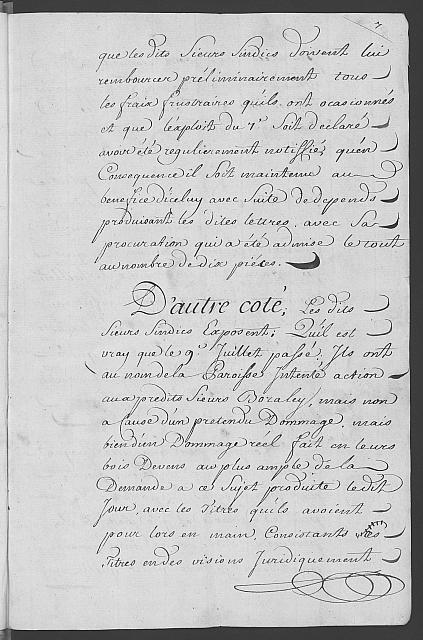 que les dits Sieurs Sindics doivent lui
rembourcer préliminairement tous
les fraix frustraires qu'ils ont ocasionnés
et que l'exploit du 7e. Soit déclaré
avoir été regulierement notiffié, qu'en
Consequence il soit maintenu au
benefice d'iceluy avec Suite de depends
produisant les dites lettres, avec Sa
procuration qui a été admise le tout
au nombre de dix piéces.
D'autre coté, Les dits
Sieurs Sindics Exposent; Qu'il est
vray que le 9e. Juillet passé, Ils ont
au nom de la Paroisse Intenté action
aux predits Sieurs Boraley, mais non
a Cause d'un pretendu Dommage, mais
bien d'un Dommage réel fait en leurs
bois Devens au plus ample de la
Demande a ce Sujet produite ledit
Jour, avec les Titres qu'ils avoient
pour lors en main, Consistants
Titres en des visions Juridiquement